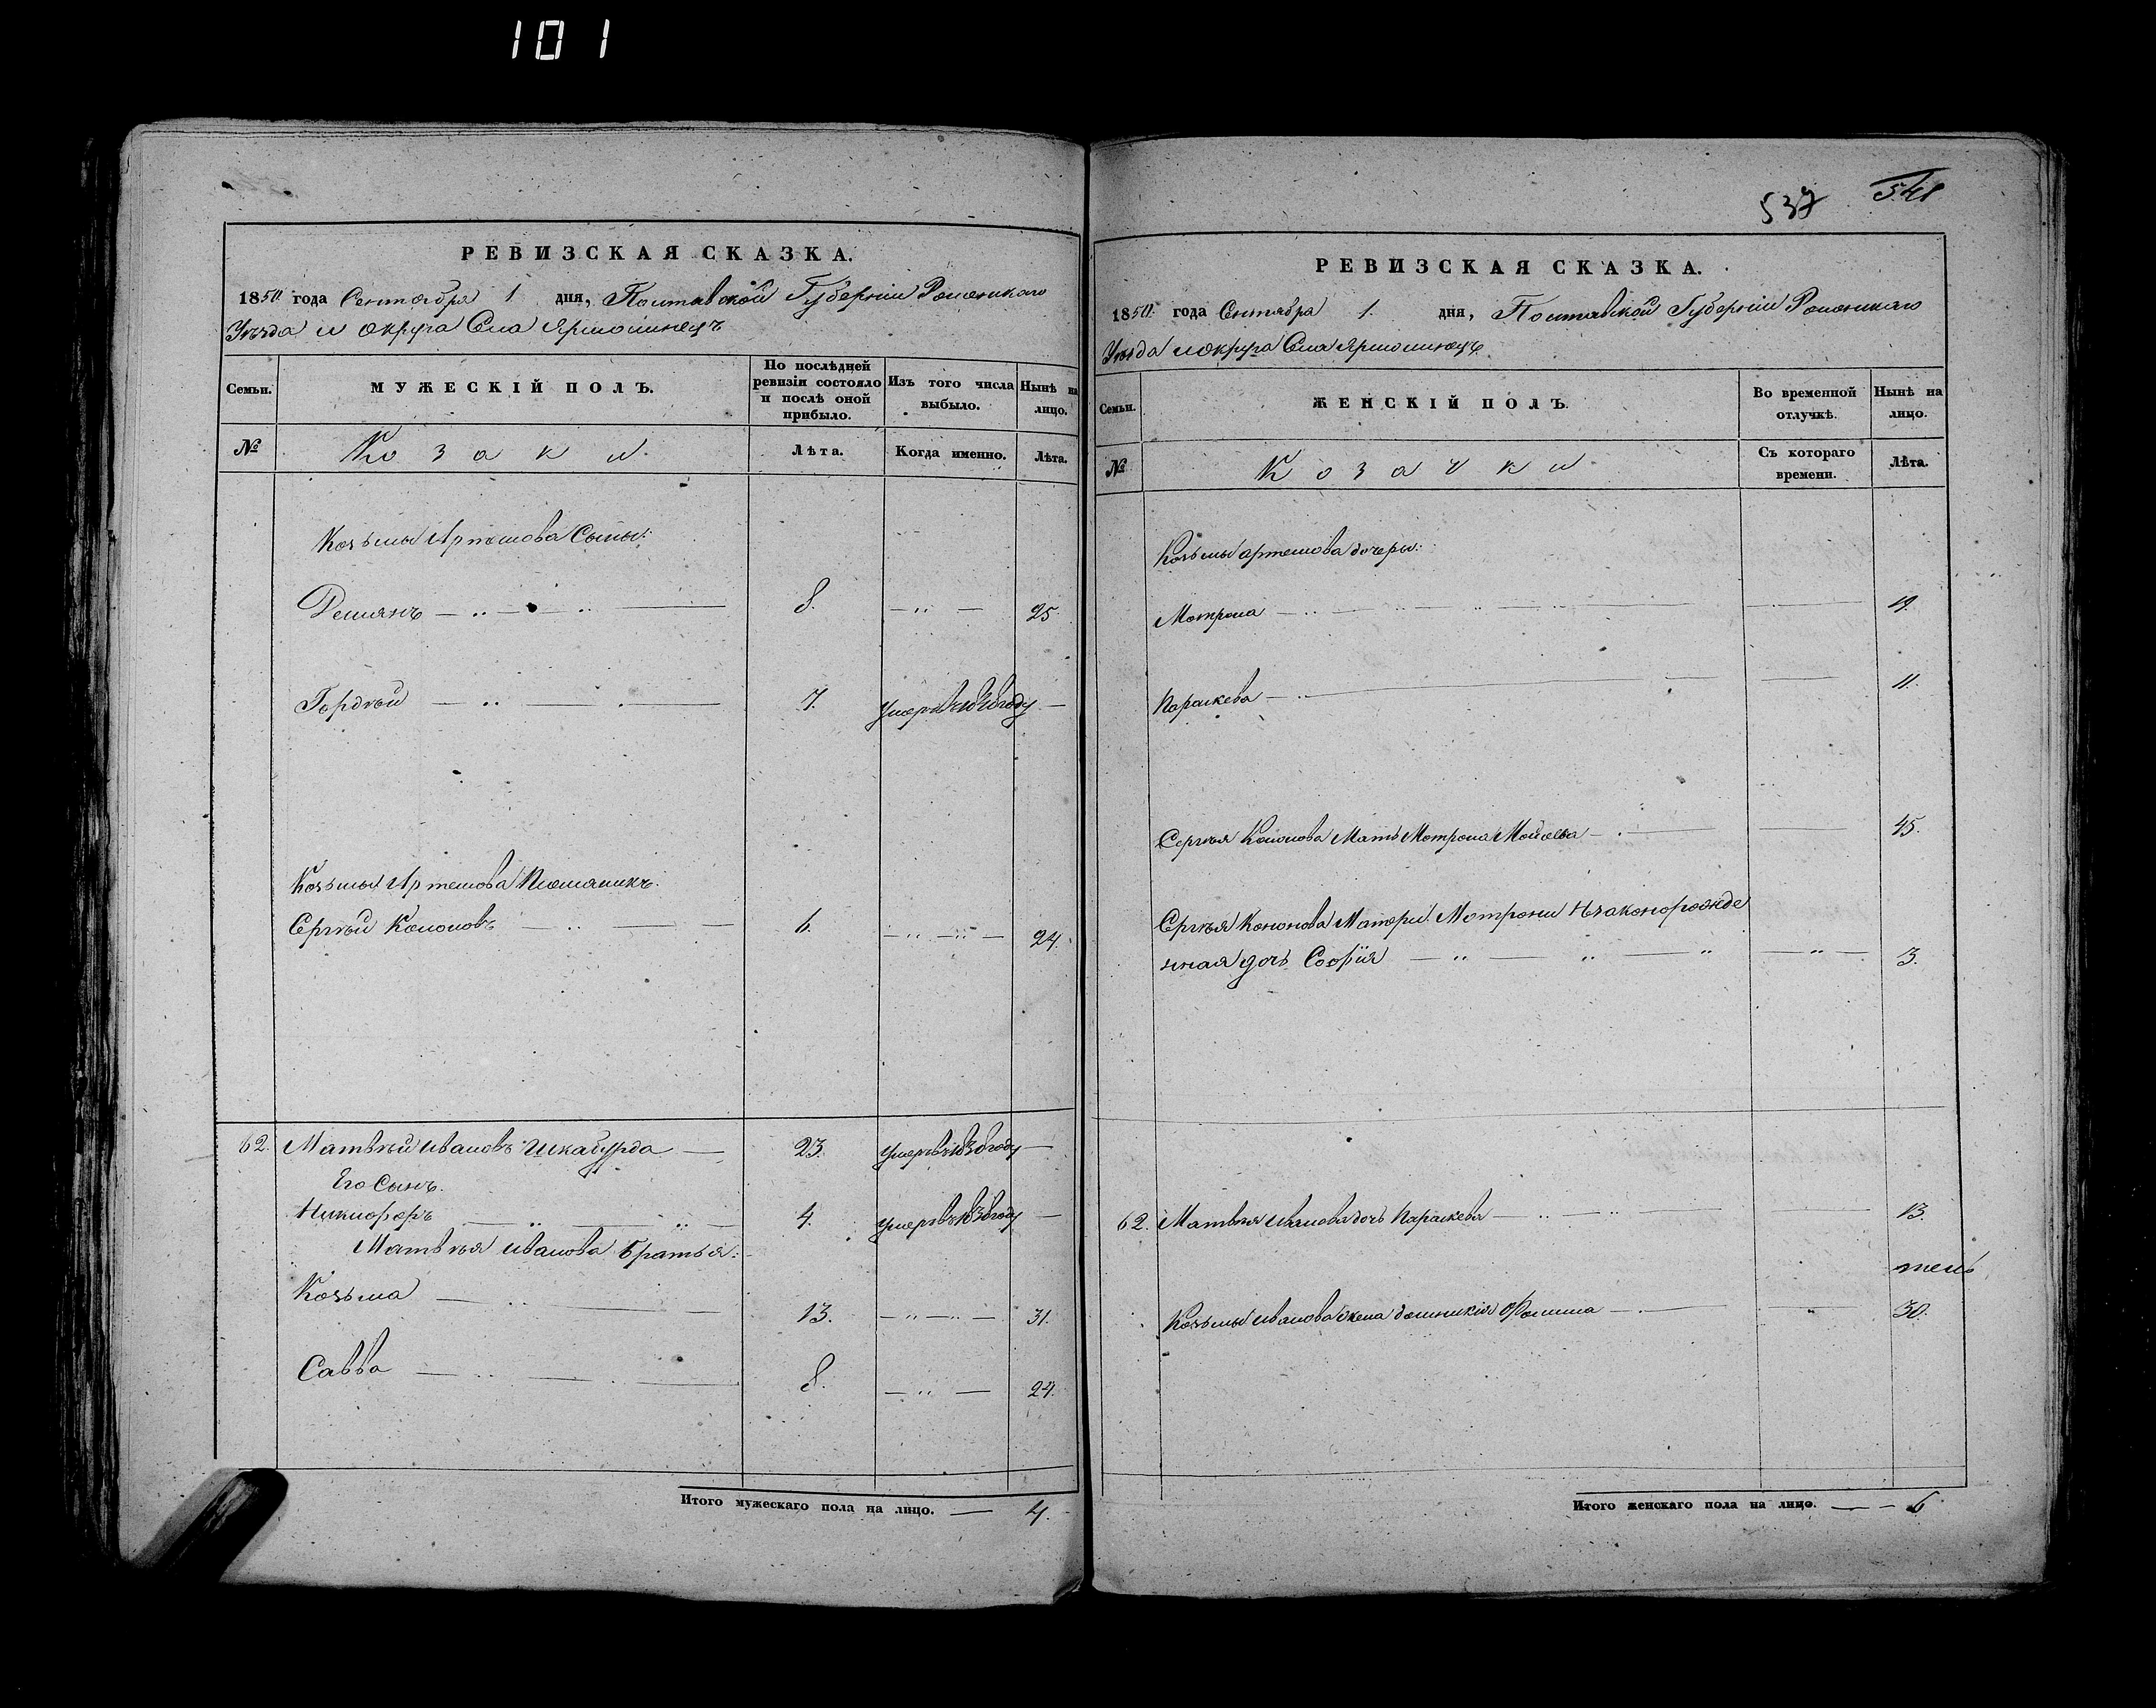 101
РЕВИЗСКАЯ СКАЗКА.
1850 года Сентября 1 дня, Полтавской Губерніи Роменскаго
Уѣзда и округа Села Ярмолинецъ
Семьи.
МУЖЕСКІЙ ПОЛЪ.
По послѣдней ревизіи состояло и послѣ оной прибыло.
Изъ того числа выбыло.
Нынѣ на лицо.
№
Козаки.
Лѣта.
Когда именно.
Лѣта.
Козьмы Артемова Сыны:
Демянъ 8. 25.
Гордѣй 7. умеръ въ году
Козьмы Артемова Племяникъ.
Сергѣй Кононовъ 6. 24.
62. Матвѣй Ивановъ Шкабурда 23. умеръ въ году
Его Сынъ.
Никифоръ 4. умеръ въ году
Матвѣя Иванова Братья:
Козьма 13. 31.
Савва 8. 24.
Итого мужескаго пола на лицо. 4.
537 541
РЕВИЗСКАЯ СКАЗКА.
1850. года Сентября 1. дня, Полтавской Губерніи Роменскаго
Уѣзда и округа Села Ярмолинецъ
Семьи.
ЖЕНСКІЙ ПОЛЪ.
Во временной отлучкѣ.
Нынѣ на лицо.
№
Козачки
Съ котораго времени.
Лѣта.
Козьмы Артемова дочери:
Мотрона 19.
Параскева 11.
Сергѣя Кононова Мать Мотрона 45.
Сергѣя Кононова Матери Мотрони Незаконорожде
нная дочь Софія 3.
62. Матвѣя Иванова дочь Параскева 13.
Козьмы Иванова жена Домникія Фомина 30.
Итого женскаго пола на лицо. 6